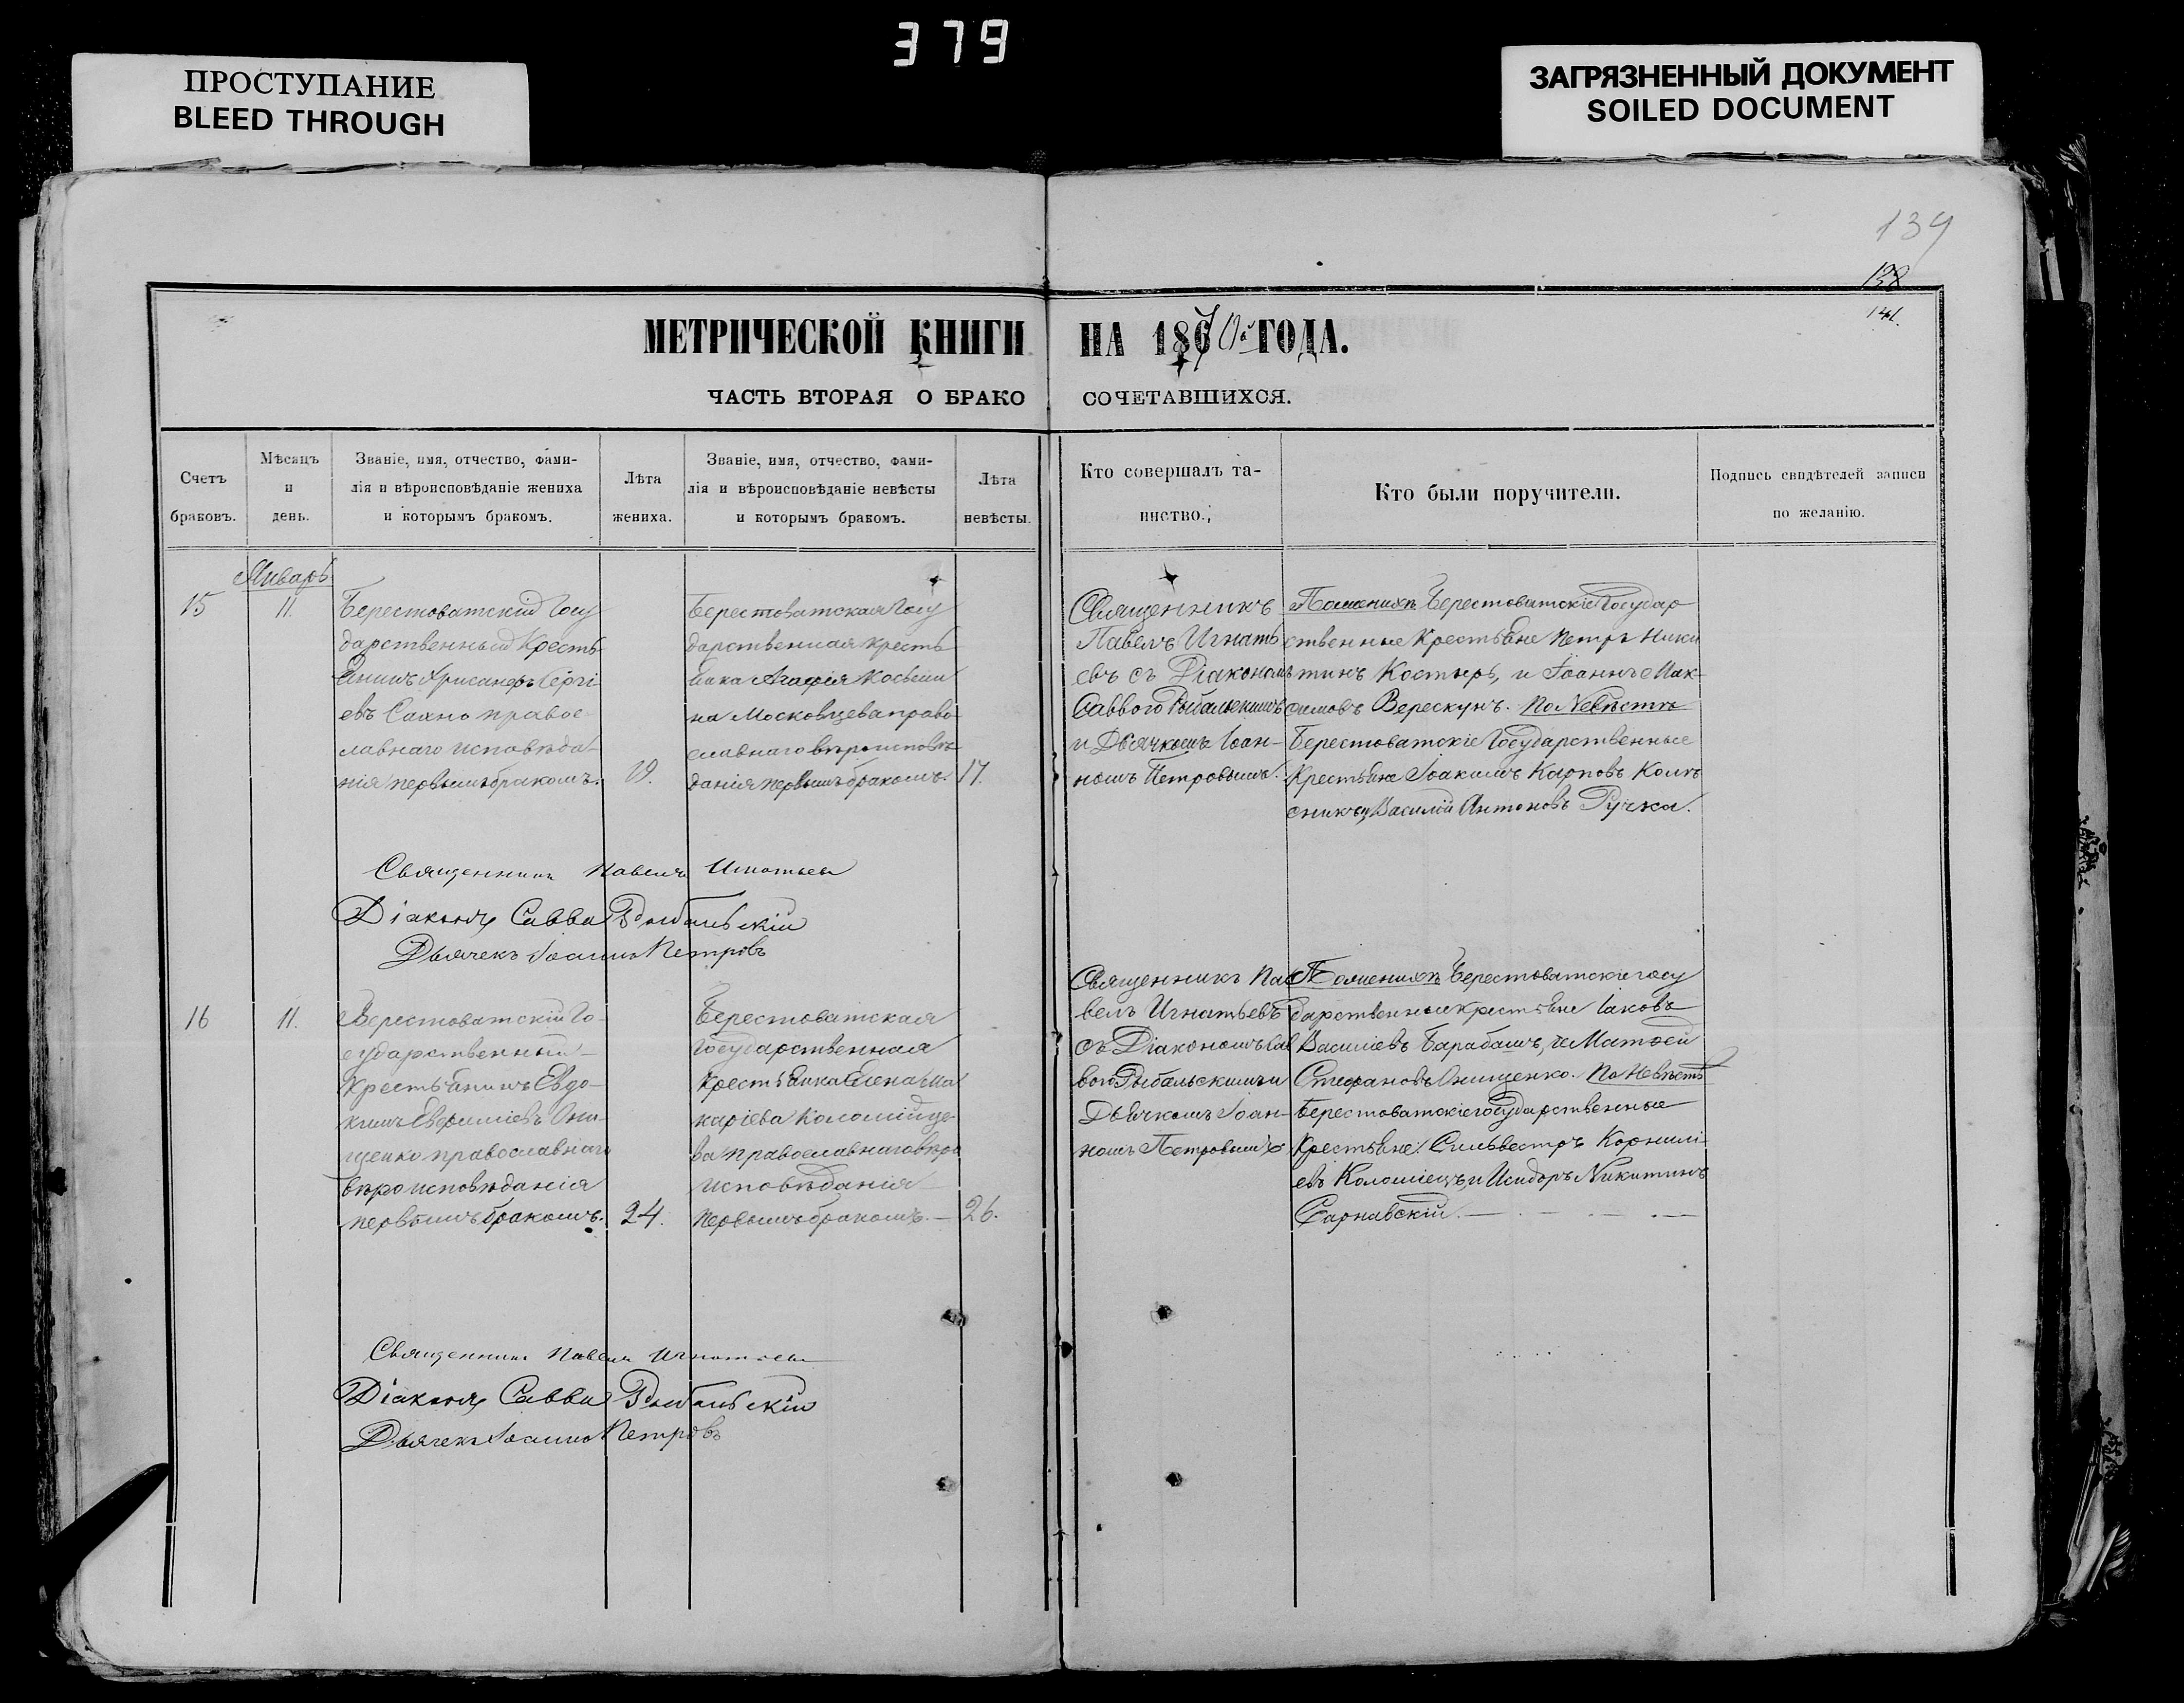 379
ПРОСТУПАНИЕ
BLEED THROUGH
ЗАГРЯЗНЕННЫЙ ДОКУМЕНТ
SOILED DOCUMENT
139
138
141.
МЕТРИЧЕСКОЙ КНИГИ НА 1870 ГОДА.
ЧАСТЬ ВТОРАЯ О БРАКО СОЧЕТАВШИХСЯ.
Счетъ
браковъ.
Мѣсяцъ
и
день.
Званіе, имя, отчество, фами-
лія и вѣроисповѣданіе жениха
и которымъ бракомъ.
Лѣта
жениха.
Званіе, имя, отчество, фами-
лія и вѣроисповѣданіе невѣсты
и которымъ бракомъ.
Лѣта
невѣсты.
Кто совершалъ та-
инство.
Кто были поручители.
Подпись свидѣтелей записи
по желанію.
Январь
15
11.
Берестоватскій Госу
дарственный Кресть
янинъ Хрисанфъ Сергі
евъ Сахно правос
лавнаго исповѣда-
нія первымъ бракомъ.
19.
Берестоватская Госу
дарственная кресть
янка Агафія Косьми
на Московцева право
славнаго вѣроисповѣ
данія первымъ бракомъ.
17.
Священникъ
Павелъ Игнать
евъ съ Діакономъ
Саввою Рыбальскимъ
и Дьячкомъ Іоан-
номъ Петровымъ.
По женихѣ Берестоватскіе Государ
ственные Крестьяне Петръ Ники
тинъ Костырь, и Іоаннъ Мак-
симовъ Верескунъ. По Невѣстѣ
Берестоватскіе Государственные
Крестьяне Іоакимъ Карповъ Колѣ
сникъ и Василій Антоновъ Ручка.
Священникъ Павелъ Игнатьевъ
Діаконъ Савва Рыбальскій
Дьячекъ Іоаннъ Петровъ
16
11.
Берестоватскій Го-
сударственный
Крестьянинъ Евдо-
кимъ Евфиміевъ Они-
щенко православнаго
вѣроисповѣданія
первымъ бракомъ.
24.
Берестоватская
Государственная
Крестьянка Елена Ма
каріева Коломійце-
ва православнаго вѣро
исповѣданія
первымъ бракомъ. —
26.
Священникъ Па
велъ Игнатьевъ
съ Діакономъ Сав
вою Рыбальскимъ и
Дьячкомъ Іоан-
номъ Петровымъ
По женихѣ Берестоватскіе госу
дарственные крестьяне Іаковъ
Василіевъ Барабашъ, и Матвей
Стефановъ Онищенко. По Невѣстѣ
Берестоватскіе государственные
Крестьяне: Сильвестръ Корнилі-
евъ Коломіецъ, и Исидоръ Никитинъ
Сарнавскій.
Священникъ Павелъ Игнатьевъ
Діаконъ Савва Рыбальскій
Дьячекъ Іоаннъ Петровъ